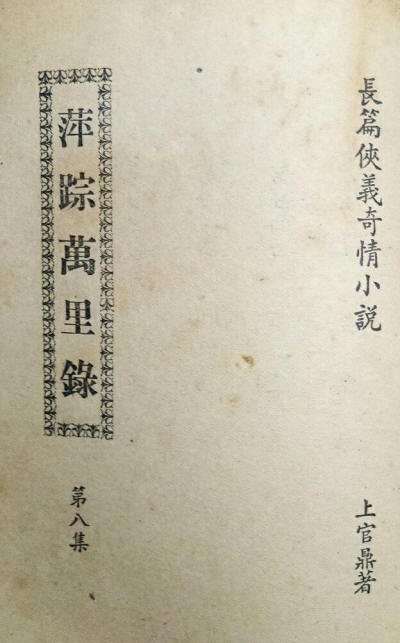 長篇俠義奇情小説
上官鼎著
萍踪萬里錄
第八集